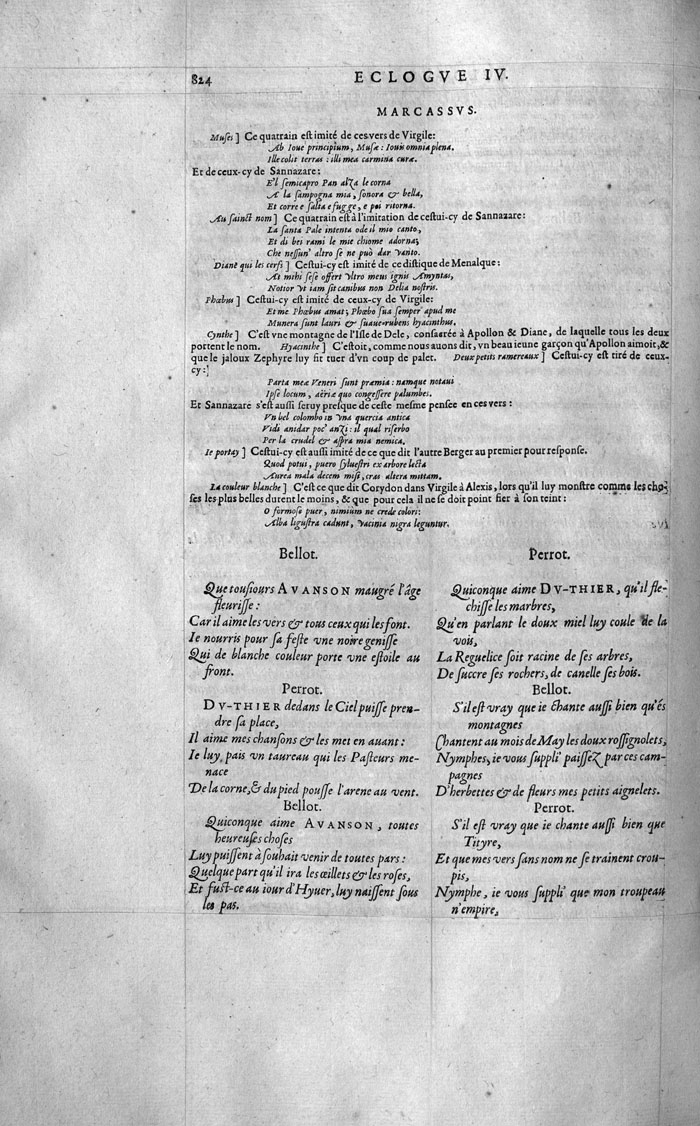 824
ECLOGVE IV.
MARCASSVS.
Muses ] Ce quatrain est imité de ces vers de Virgile:
Ab Ioue principium, Musæ: Iouis omnia plena.
Ille colit terras: illi mea carmina curæ.
Et de ceux-cy de Sannazare:
E'l semicapro Pan alza le corna
A la sampogna mia, sonora & bella,
Et corre e salta e fugge, e poi ritorna.
Au sainct nom ] Ce quatrain est à l'imitation de cestui-cy de Sannazare:
La santa Pale intenta ode il mio canto,
Et di bei rami le mie chiome adorna;
Che nessun' altro se ne può dar vanto.
Diane qui les cerfs ] Cestui-cy est imité de ce distique de Menalque:
At mihi sese offert vltro meus ignis Amyntas,
Notior vt iam sit canibus non Delia nostris.
Phœbus ] Cestui-cy est imité de ceux-cy de Virgile:
Et me Phœbus amat; Phœbo sua semper apud me
Munera sunt lauri & suaue-rubens hyacinthus.
Cynthe ] C'est vne montagne de l'Isle de Dele, consacrée à Apollon & Diane, de laquelle tous les deux
portent le nom. Hyacinthe ] C'estoit, comme nous auons dit, vn beau ieune garçon qu'Apollon aimoit, &
que le jaloux Zephyre luy fit tuer d'vn coup de palet. Deux petits ramereaux ] Cestui-cy est tiré de ceux-
cy:
Parta meæ Veneri sunt præmia: namque notaui
Ipse locum, aëriæ quo congessere palumbes.
Et Sannazare s'est aussi seruy presque de ceste mesme pensée en ces vers:
Vn bel colombo in vna quercia antica
Vidi anidar poc' anzi: il qual riserbo
Per la crudel & aspra mia nemica.
Ie portay ] Cestui-cy est aussi imité de ce que dit l'autre Berger au premier pour response.
Quod potui, puero syluestri ex arbore lecta
Aurea mala decem misi, cras altera mittam.
La couleur blanche ] C'est ce que dit Corydon dans Virgile à Alexis, lors qu'il luy monstre comme les cho-
ses les plus belles durent le moins, & que pour cela il ne se doit point fier à son teint:
O formose puer, nimium ne crede colori:
Alba ligustra cadunt, vacinia nigra leguntur.
Bellot.
Que tousiours AVANSON maugré l'âge
fleurisse:
Car il aime les vers & tous ceux qui les font.
Ie nourris pour sa feste vne noire genisse
Qui de blanche couleur porte vne estoile au
front.
Perrot.
DV-THIER dedans le Ciel puisse pren-
dre sa place,
Il aime mes chansons & les met en auant:
Ie luy pais vn taureau qui les Pasteurs me-
nace
De la corne, & du pied pousse l'arene au vent.
Bellot.
Quiconque aime AVANSON, toutes
heureuses choses
Luy puissent à souhait venir de toutes pars:
Quelque part qu'il ira les œillets & les roses,
Et fust-ce au iour d'Hyuer, luy naissent sous
les pas.
Perrot.
Quiconque aime DV-THIER, qu'il fle-
chisse les marbres,
Qu'en parlant le doux miel luy coule de la
vois,
La Reguelice soit racine de ses arbres,
De succre ses rochers, de canelle ses bois.
Bellot.
S'il est vray que ie chante aussi bien qu'és
montagnes
Chantent au mois de May les doux rossignolets,
Nymphes, ie vous suppli' paissez par ces cam-
pagnes
D'herbettes & de fleurs mes petits aignelets.
Perrot.
S'il est vray que ie chante aussi bien que
Tityre,
Et que mes vers sans nom ne se trainent crou-
pis,
Nymphe, ie vous suppli' que mon troupeau
n'empire,